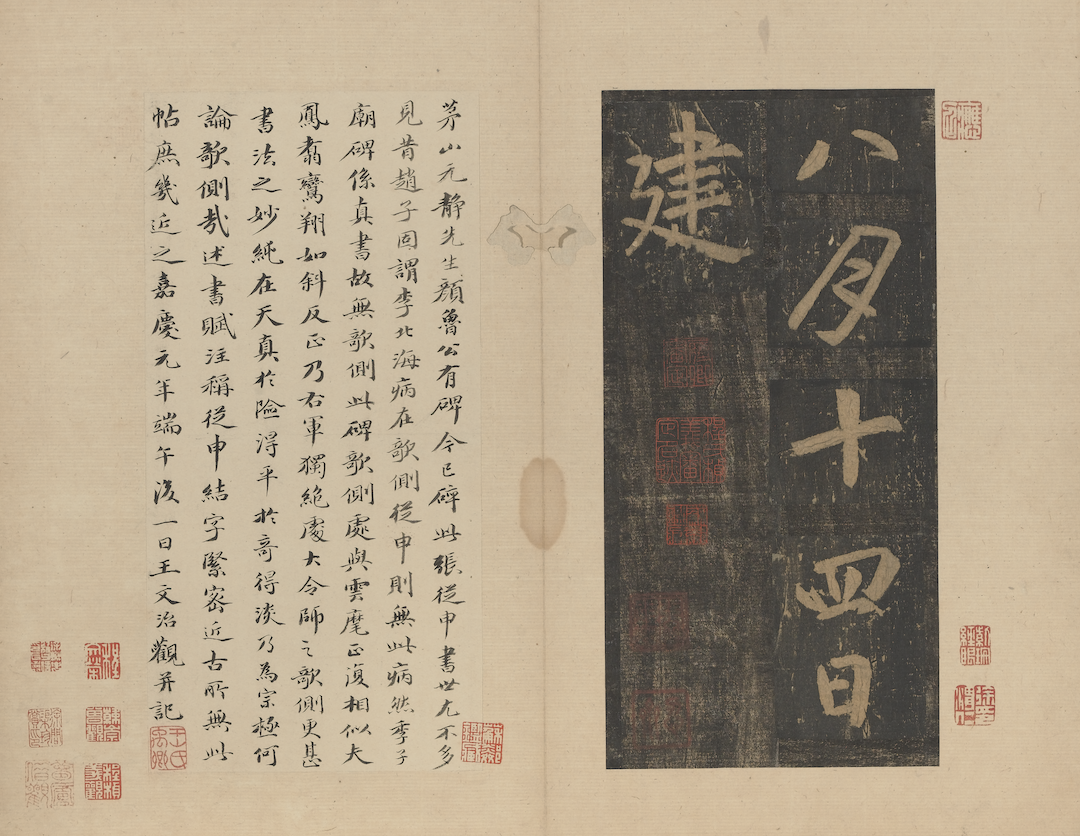 八月十四日
建
茅山元靜先生顏魯公有碑今已碎此張從申書世尤不多
見昔趙子固謂李北海病在欹側從申則無此病然季子
廟碑係真書故無欹側此碑欹側處與雲麾正復相似夫
鳳翥鸞翔如斜反正乃右軍獨絕處大令師之欹側更甚
書法之妙純在天真於險得平於奇得淡乃為宗極何
論欹側哉述書賦注稱從申結字緊密近古所無此
帖庶幾近之嘉慶元年端午後一日王文治觀并記
王氏禹卿